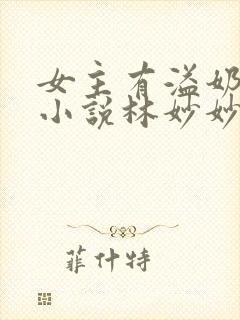 女主有溢奶
小说林妙妙
菲什特